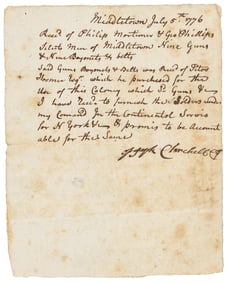 Middletown July 5th 1776
Recd. of Philip Mortimer & Geo Phillips
Select Men of Middletown Nine Guns
& Nine Bayonets & belts
Said Guns Bayonets & Belts was Recd. of
which he purchased for the
Use of this Colony which Sd. Guns &c
I have Recd. to furnish the Soldiers under
my Comand In the Continental Servis
for N York & promis to be Account
able for the Same